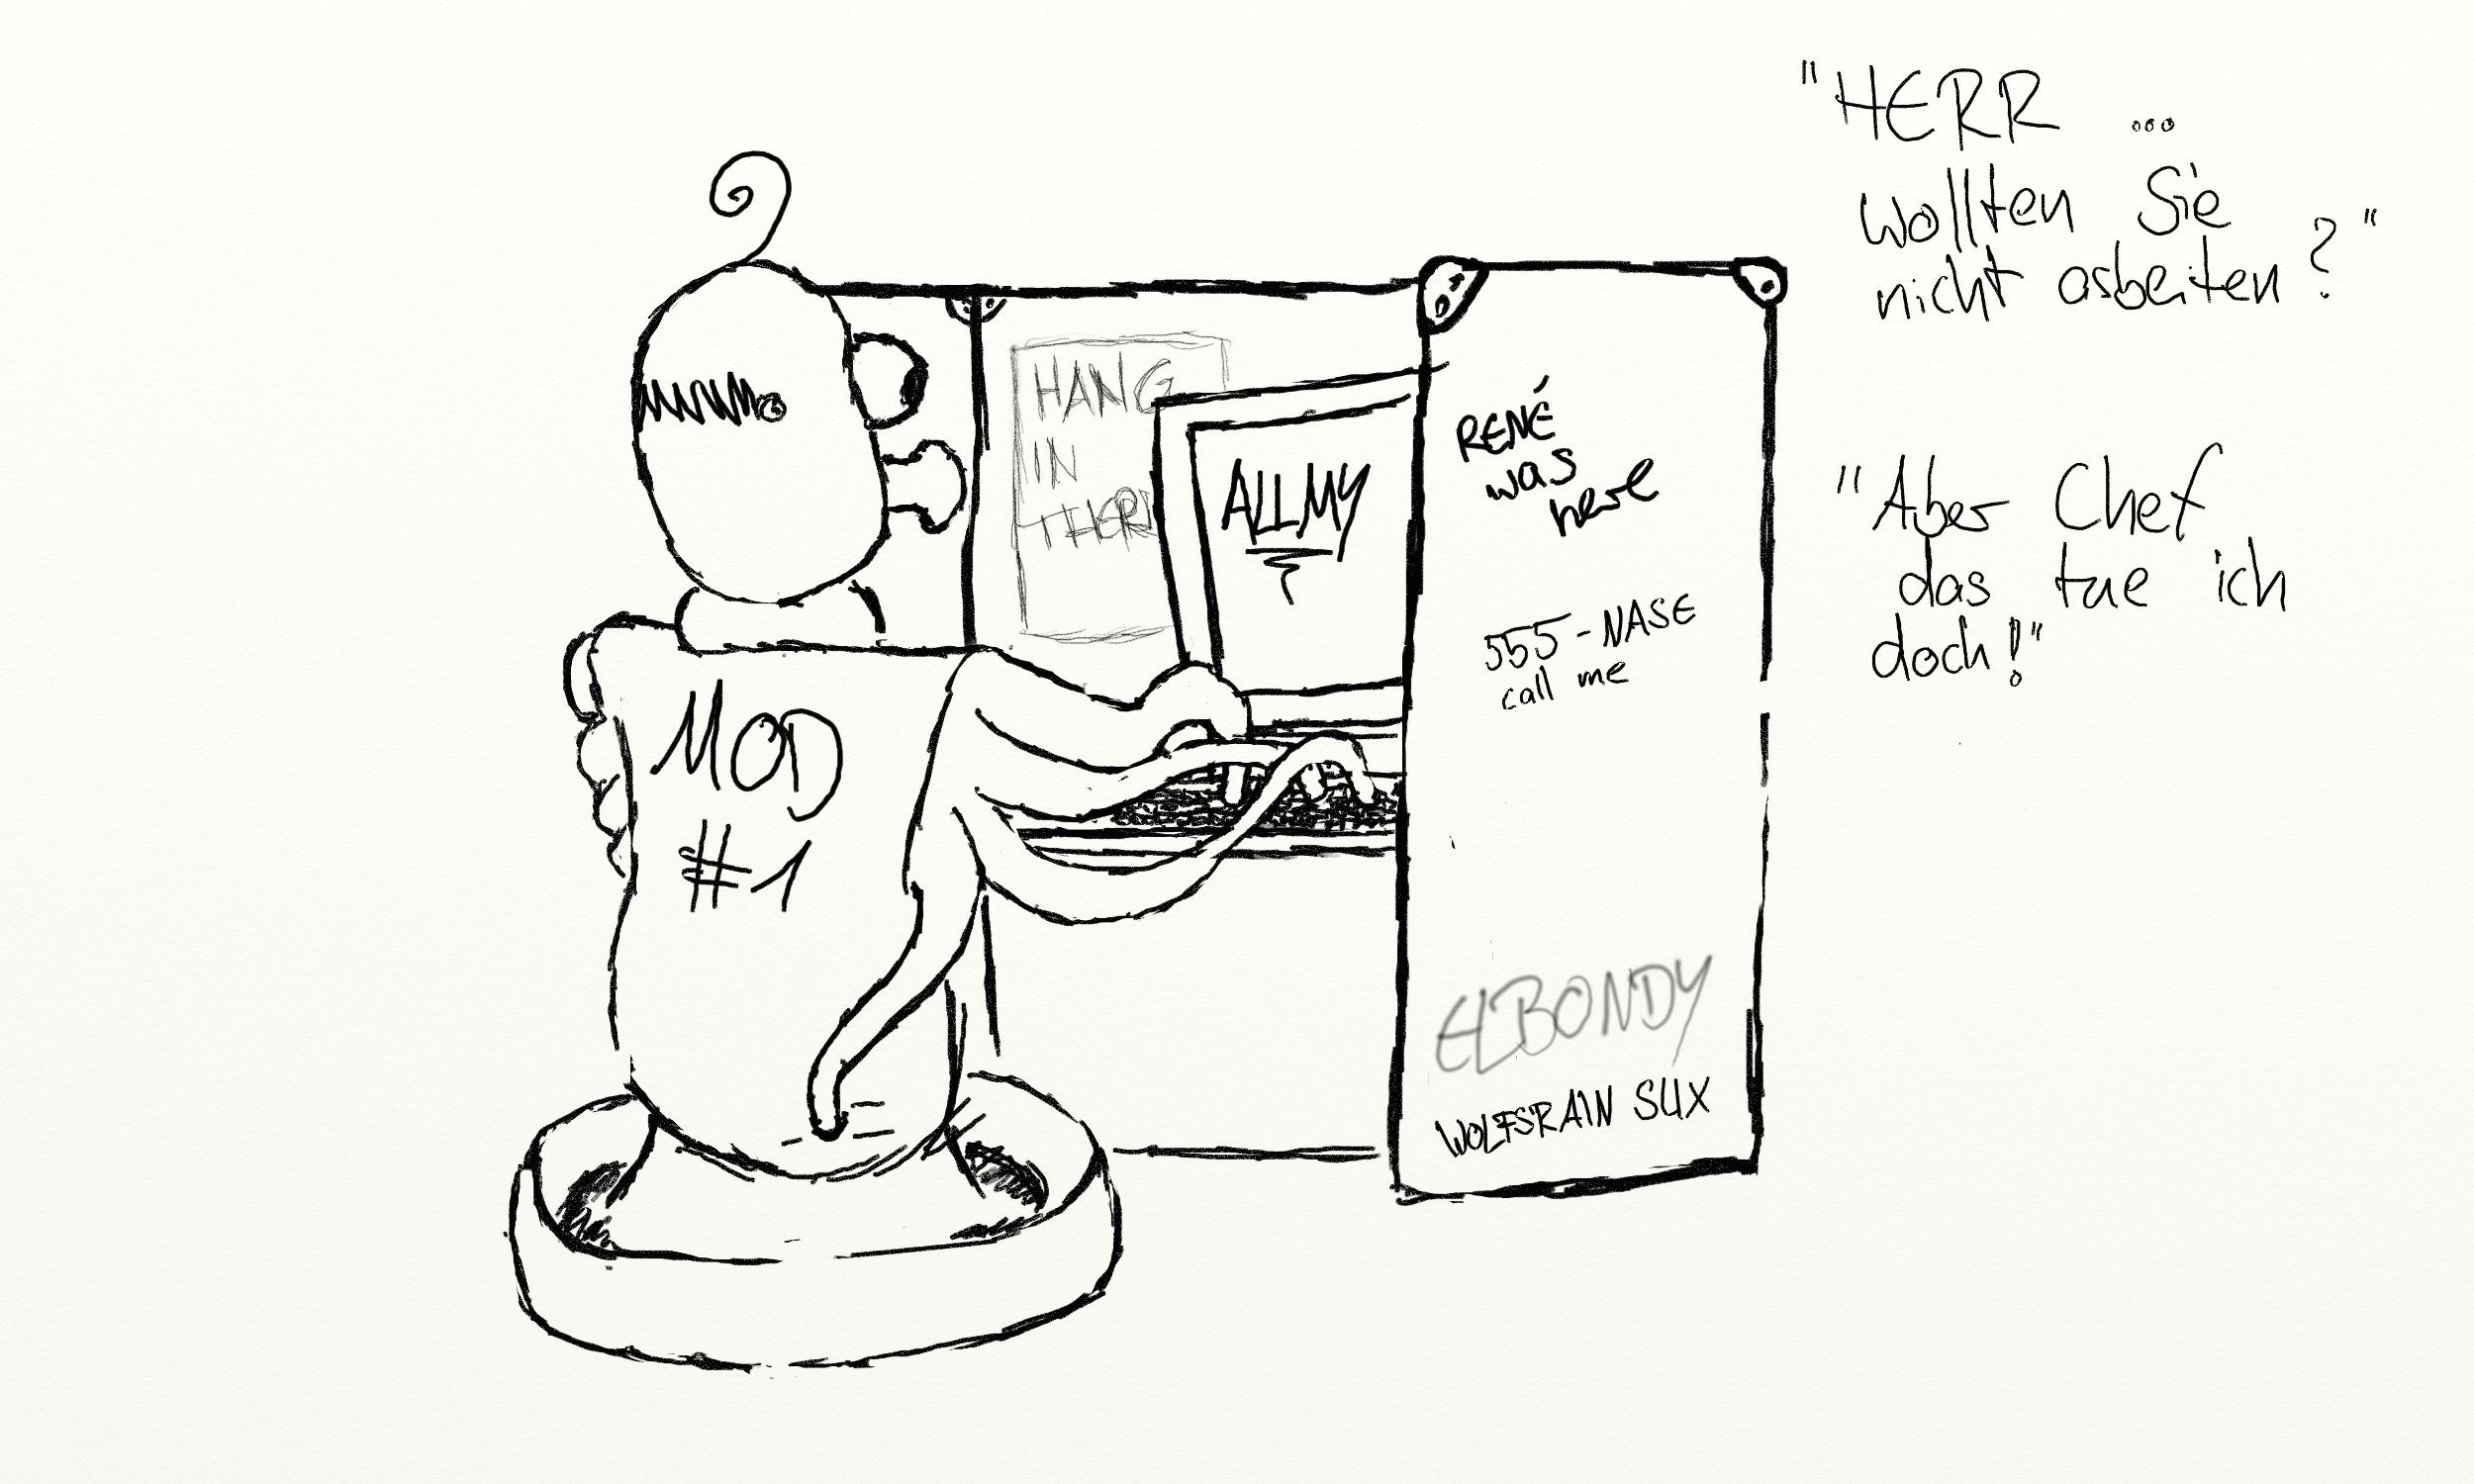 "HERR ...
wollten Sie
nicht arbeiten?"
"Aber Chef
das tue ich
doch!"
HANG
IN
THER
ALLMY
RENÉ
was
here
555-NASE
call me
MOD
#1
ELBONDY
WOLFSRAIN SUX